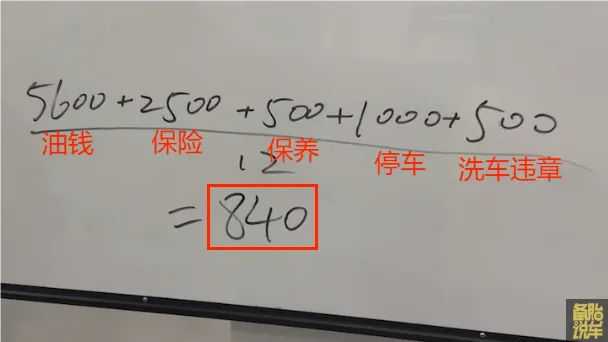 5600+2500+500+1000+500
油钱 保险 保养 停车 洗车违章
12
=840
备胎说车